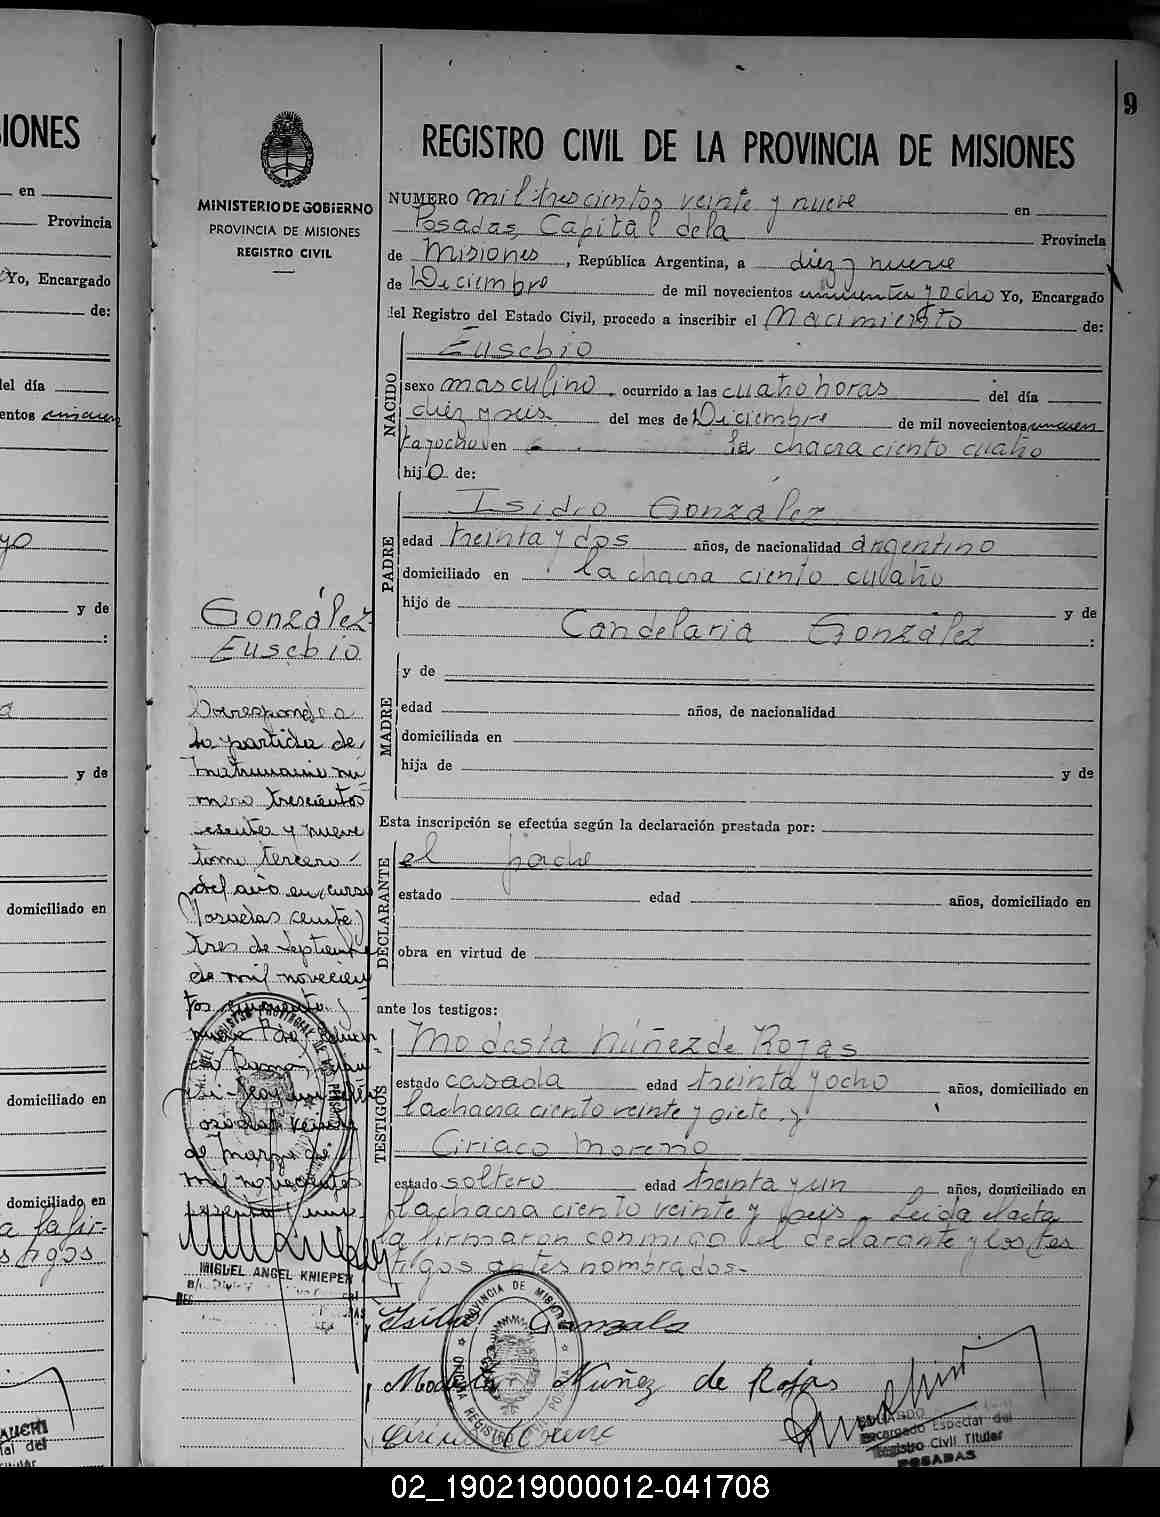 9
SIONES
en
Provincia
Yo, Encargado
de:
del día
entos cincuen
yo
y de
:
y de
domiciliado en
domiciliado en
domiciliado en
MINISTERIO DE GOBIERNO
PROVINCIA DE MISIONES
REGISTRO CIVIL
REGISTRO CIVIL DE LA PROVINCIA DE MISIONES
NUMERO mil trescientos veinte y nueve en
Posadas, Capital dela Provincia
de Misiones, República Argentina, a diez y nueve
de Diciembre de mil novecientos cincuenta y ocho Yo, Encargado
del Registro del Estado Civil, procedo a inscribir el Nacimiento de:
NACIDO
Eusebio
sexo masculino, ocurrido a las cuatro horas del día
diez y seis del mes de Diciembre de mil novecientos cincuen
ta y ocho en la chacra ciento cuatro
hijo de:
PADRE
Isidro González
edad treinta y dos años, de nacionalidad argentino
domiciliado en la chacra ciento cuatro
hijo de y de
Candelaria González :
MADRE
y de
edad años, de nacionalidad
domiciliada en
hija de y de
Esta inscripción se efectúa según la declaración prestada por:
DECLARANTE
el padre
estado edad años, domiciliado en
obra en virtud de
ante los testigos:
TESTIGOS
Modesta Núñez de Rojas
estado casada edad treinta y ocho años, domiciliado en
la chacra ciento veinte y siete y
Ciriaco Moreno
estado soltero edad treinta y un años, domiciliado en
la chacra ciento veinte y seis. Leída el acta
la firmaron conmigo el declarante y los tes
tigos antes nombrados.-
Isidro Gonzalz
Modesta Núñez de Rojas
González
Eusebio
Corresponde a
la partida de
matrimonio nú
mero trescientos
sesenta y nueve
tomo tercero
del año en curso
Posadas veinte y
tres de septiembre
de mil novecien
tos cincuenta y
nueve
veinte
de Marzo de
mil novecientos
MIGUEL ANGEL KNIEPER
PROVINCIA DE MISIONES
EDUARDO
Encargado Especial del
Registro Civil Titular
POSADAS
02_190219000012-041708